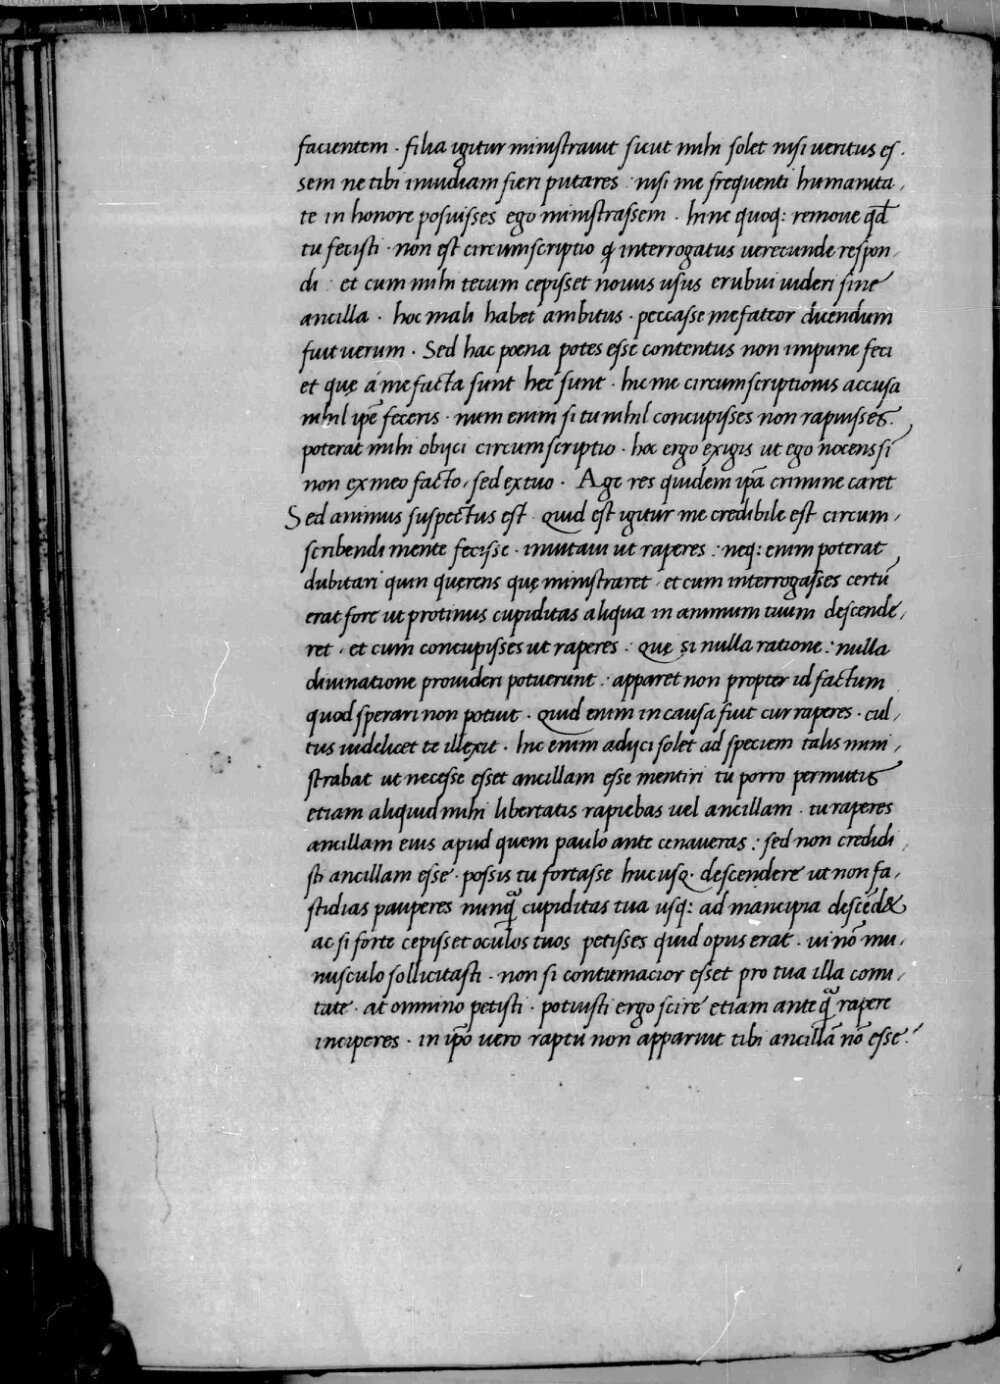 facientem · filia igitur ministrauit sicut mihi solet nisi ueritus es,
sem ne tibi inuidiam fieri putares : nisi me frequenti humanita,
te in honore posuisses ego ministrassem · hinc quoq: remoue qđ
tu fecisti · non est circumscriptio ꝙ interrogatus uerecunde respon,
di : et cum mihi tecum cepisset nouus usus erubui uideri sine
ancilla · hoc mali habet ambitus · peccasse me fateor dicendum
fuit uerum · Sed hac poena potes esse contentus non impune feci
et quę á me facta sunt hec sunt · hic me circumscriptionis accusa
nihil ip̄e feceris · num enim si tu nihil concupisses non rapuisses
poterat mihi obijci circumscriptio · hoc ergo exigis ut ego nocens si
non ex meo facto, sed ex tuo · Age res quidem ip̄a crimine caret
Sed animus suspectus est · quid est igitur me credibile est circum,
scribendi mente fecisse · inuitaui ut raperes : neq: enim poterat
dubitari quin querens quę ministraret, et cum interrogasses certū
erat fore ut protinus cupiditas aliqua in animum tuum descende,
ret, et cum concupisses ut raperes : Quę si nulla ratione : nulla
diuinatione prouideri potuerunt : apparet non propter id factum
quod sperari non potuit · Quid enim in causa fuit cur raperes · cul,
tus uidelicet te illexit · hic enim adijci solet ad speciem talis mini,
strabat ut necesse esset ancillam esse mentiri tu porro permittis
etiam aliquid mihi libertatis rapiebas uel ancillam · tu raperes
ancillam eius apud quem paulo ante cenaueras : sed non credidi,
sti ancillam esse · possis tu fortasse huc usq · descendere ut non fa,
stidias pauperes nunꝗ̃ cupiditas tua usq: ad mancipia descēd&
ac si forte cepisset oculos tuos petisses quid opus erat · ui nō mu,
nusculo sollicitasti · non si contumacior esset pro tua illa comi,
tate · at omnino petisti · potuisti ergo scire etiam ante ꝗ̃ rapere
inciperes · in ip̄o uero raptu non apparuit tibi ancillā nō esse :